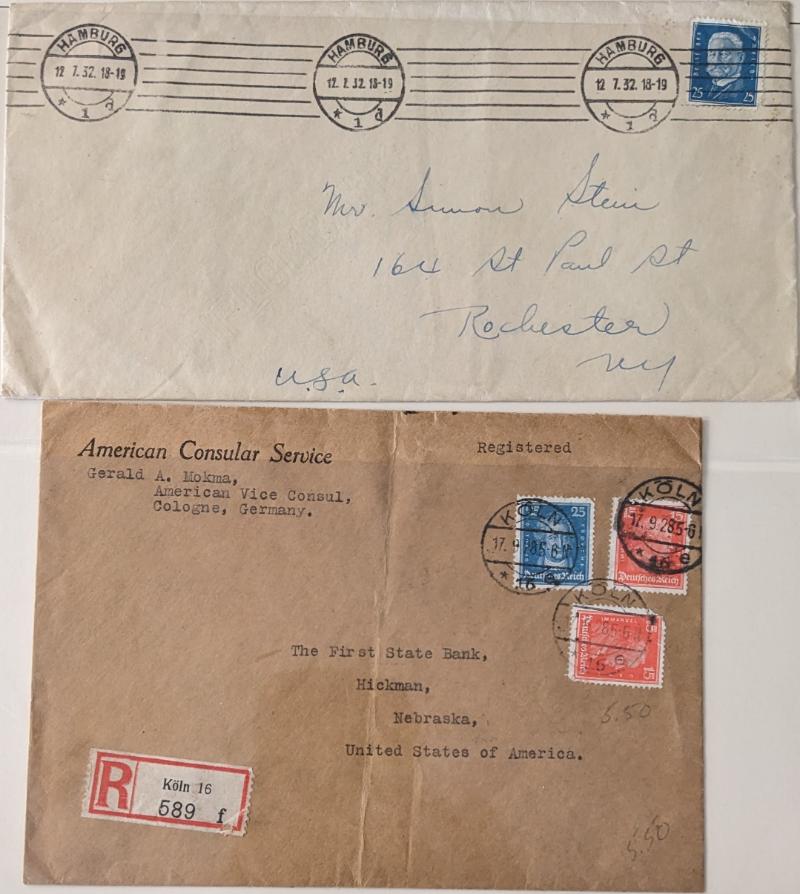 HAMBURG
12 7.32.18-19
* 1 d
HAMBURG
12. 7. 32. 18-19
* 1 d
HAMBURG
12 7.32.18-19
* 1 d
25 25
Mr. Simon Stein
164 St Paul St
Rochester
NY
U.S.A.
American Consular Service
Registered
Gerald A. Mokma,
American Vice Consul,
Cologne, Germany.
KÖLN
17.9.28.5-6
* 16 e
25
Deutsches Reich
KÖLN
17.9.28.5-6
* 16 e
15 15
Deutsches Reich
KÖLN
16 e
15
Deutsches Reich
The First State Bank,
Hickman,
Nebraska,
United States of America.
5.50
R
Köln 16
589 f
5.50